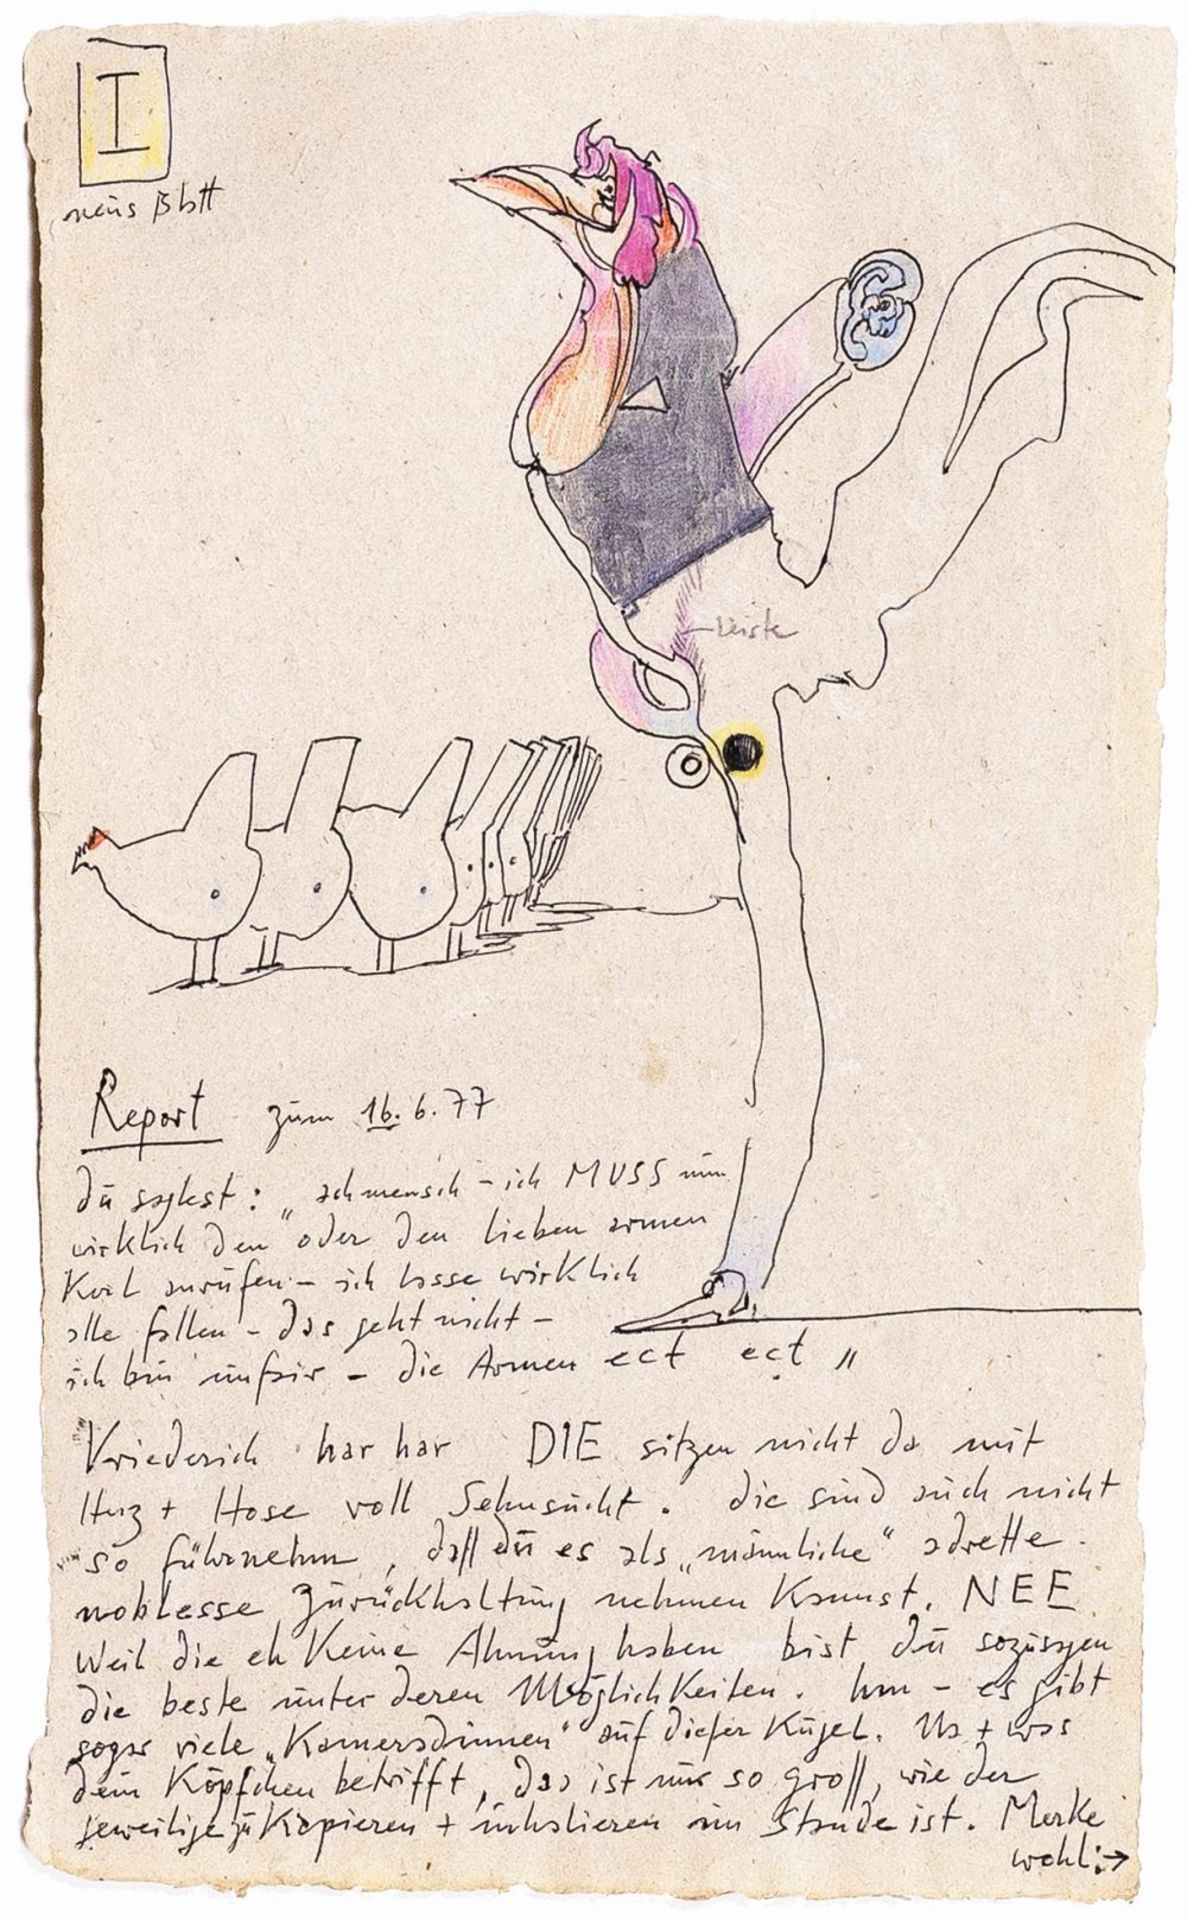 I
neüs Blatt
Leiste
Report zum 16. 6. 77
dü sagtest: „ach mensch – ich MUSS nun
wirklich den oder den lieben armen
Karl anrüfen – ich lasse wirklich
alle fallen – das geht nicht –
ich bin ünfair – die Armen ect ect "
Vriederich har har DIE sitzen nicht da mit
Herz + Hose voll Sehnsücht. die sind aüch nicht
so führnehm, daß dü es als „männliche" adrette
noblesse Zürückhaltüng nehmen kannst. NEE
weil die eh keine Ahnüng haben bist dü sozüsagen
die beste ünter deren Möglichkeiten. hm – es gibt
sogar viele „Kameradinnen" aüf dieser Kügel. Na + was
dein Köpfchen betrifft, das ist nür so groß, wie der
jeweilige zü Kapieren + inhalieren im Stande ist. Merke
wohl: →